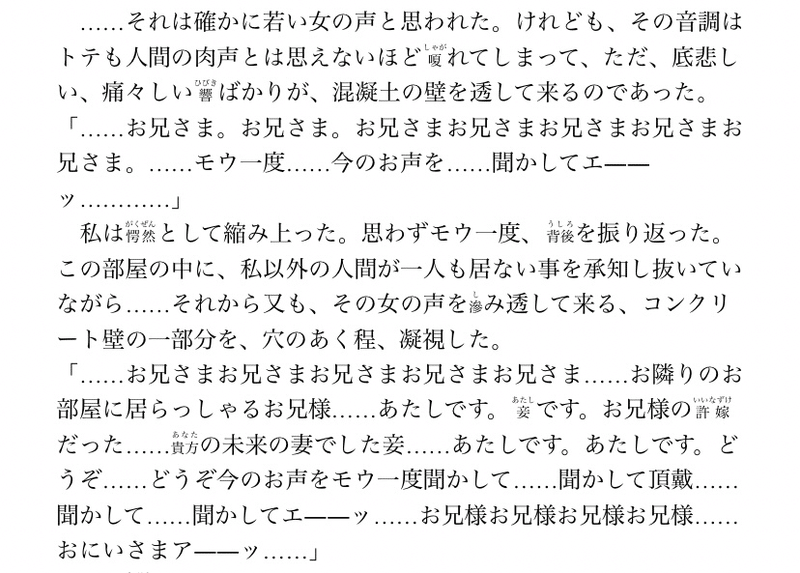 ……それは確かに若い女の声と思われた。けれども、その音調は
トテも人間の肉声とは思えないほど嗄れてしまって、ただ、底悲し
い、痛々しい響ばかりが、混凝土の壁を透して来るのであった。
「……お兄さま。お兄さま。お兄さまお兄さまお兄さまお兄さまお
兄さま。……モウ一度……今のお声を……聞かしてエ――
ッ…………」
私は愕然として縮み上った。思わずモウ一度、背後を振り返った。
この部屋の中に、私以外の人間が一人も居ない事を承知し抜いてい
ながら……それから又も、その女の声を滲み透して来る、コンクリ
ート壁の一部分を、穴のあく程、凝視した。
「……お兄さまお兄さまお兄さまお兄さまお兄さま……お隣りのお
部屋に居らっしゃるお兄様……あたしです。妾です。お兄様の許嫁
だった……貴方の未来の妻でした妾……あたしです。あたしです。ど
うぞ……どうぞ今のお声をモウ一度聞かして……聞かして頂戴……
聞かして……聞かしてエ――ッ……お兄様お兄様お兄様お兄様……
おにいさまア――ッ……」